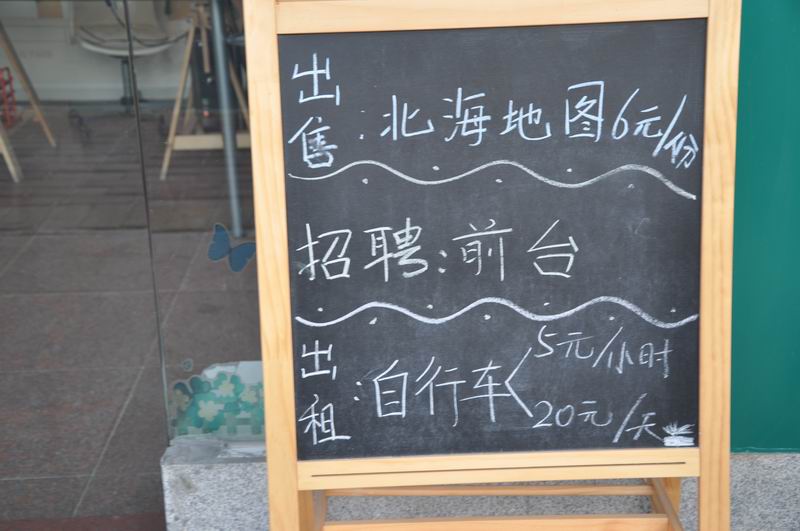 出售：北海地图6元/份
招聘：前台
出租：自行车<5元/小时
20元/天